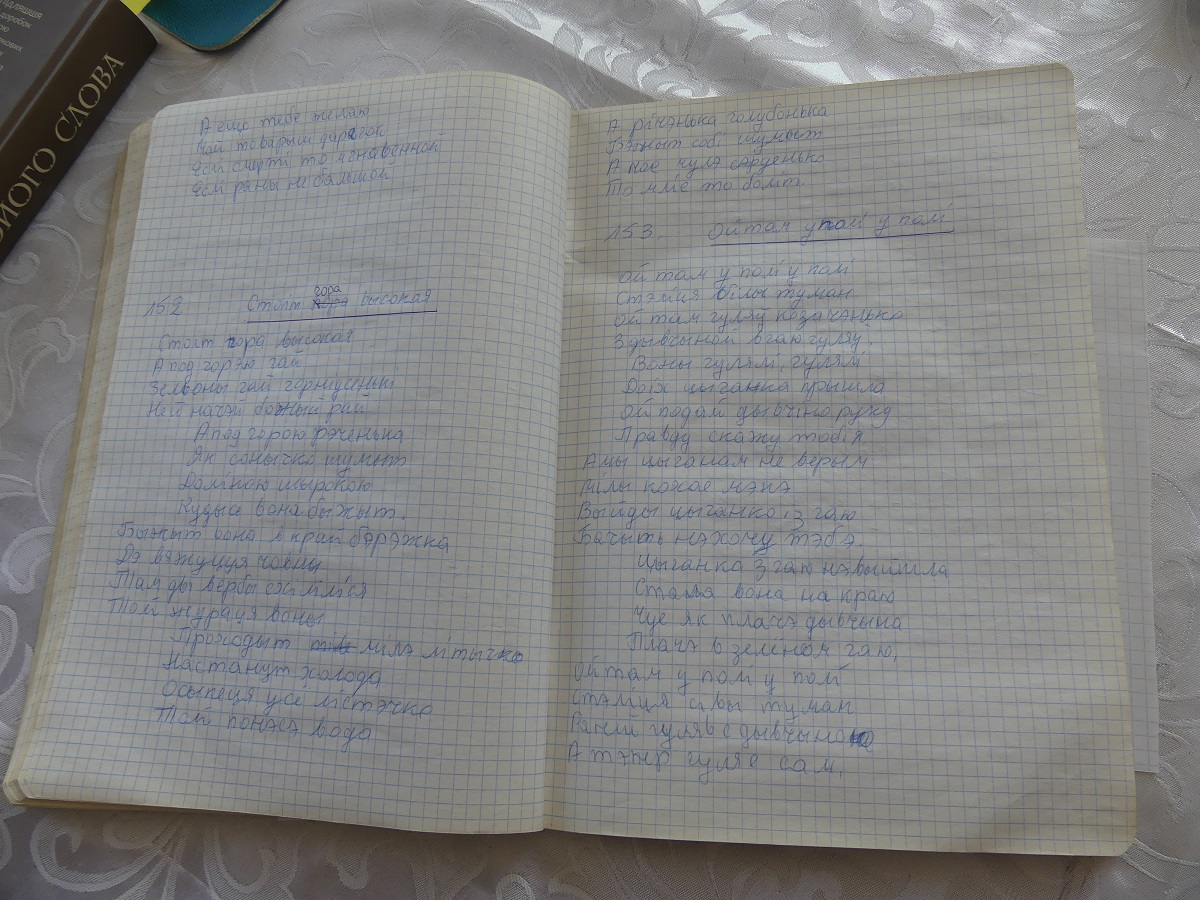 ЙОГО СЛОВА
А ещо тебе желаю
Мой товарыш дарагок
Есй смерті то мгнавенной
Есй раны небальшой
152
Стоіт гора высокая
Стоіт гора высокая
А под горэю гай
Зелёоны гай
Неіначэй божный рай
А под горою рэченька
Як сонычко шумыт
Доліною шырокою
Кудысь вона быжыт.
Быжыт вона в край бэрэжка
Дэ вяжуцця човны
Там ды вербы схіліліся
Той жураця воны
Проходыт мілэ літычко
Настанут холода
Осыпеця усі лістэчко
Той понэсэ вода
А річэнька голубонька
Бэжыт собі шумыт
А мое чула сэрденько
То мніе то боліт.
153. Ой там у полі у полі
Ой там у полі у полі
Стэліця білы туман
Ой там гуляу козачэнько
З дывчыной в гаю гуляу.
Воны гулялі, гулялі
До іх цыганка прышла
Ой подай дывчіно руку
Правду скажу тобі я
А мы цыганам не верым
Мілы кохае мэнэ
Выйды цыганко із гаю
Бачыть нэ хочу тэбэ.
Цыганка з гаю нэ выйшла
Стала вона на краю
Чуе як плачэ дывчына
Плачэ в зеліном гаю,
Ой там у полі у полі
Стэліця сівы туман
Раній гуляв с дывчыною
А тэпір гуляе сам.